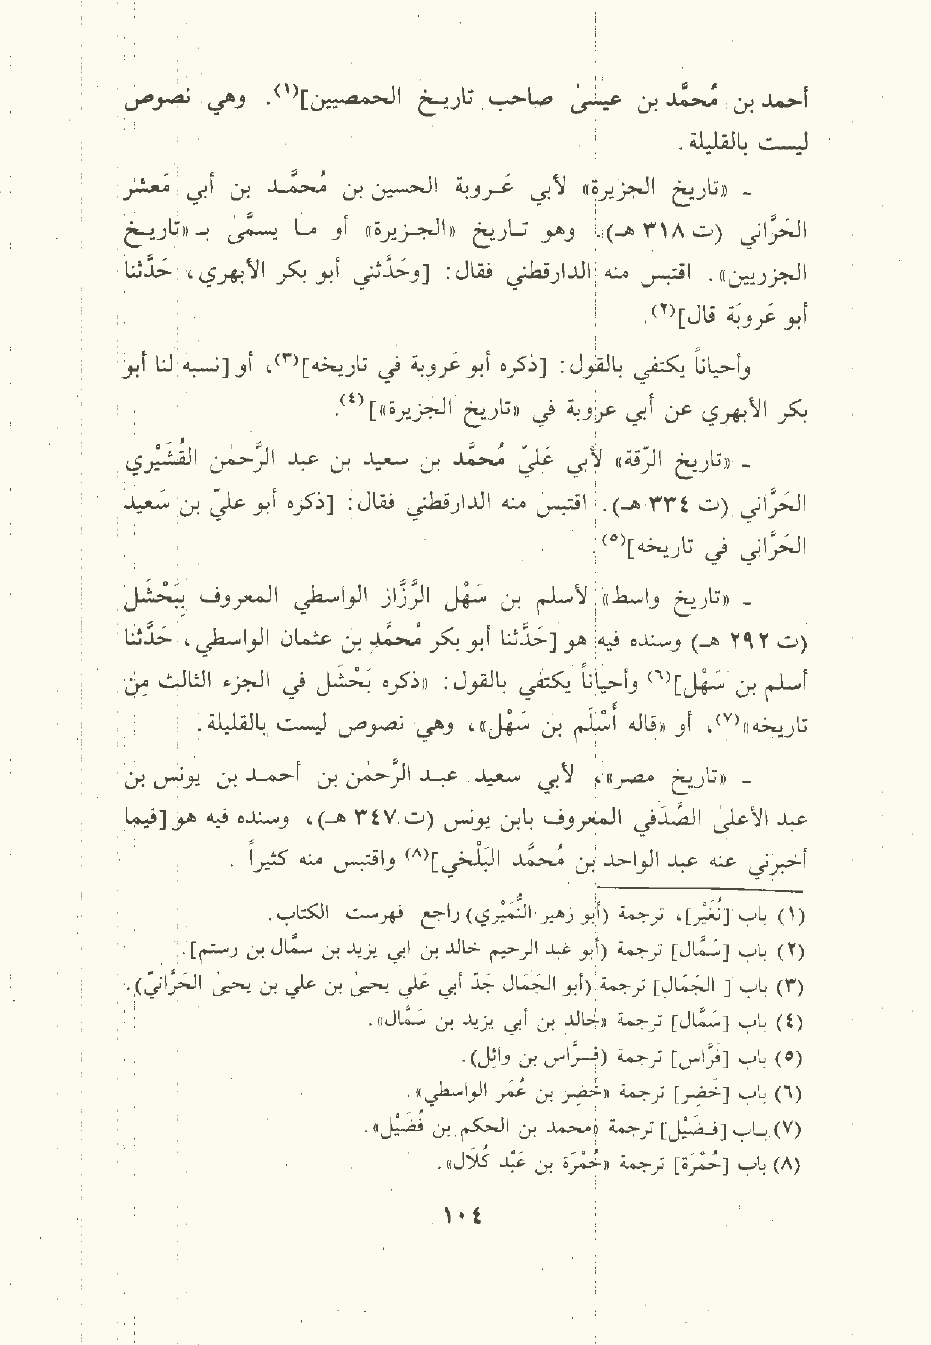 أحمد بن مُحمَّد بن عيسىٰ صاحب تاريخ الحمصيين]⁽¹⁾. وهي نصوص
ليست بالقليلة.
ـ «تاريخ الجزيرة» لأبي عَروبة الحسين بن مُحمَّد بن أبي مَعشَر
الحَرَّاني (ت ٣١٨ هـ). وهو تاريخ «الجزيرة» أو ما يسمَّىٰ بـ «تاريخ
الجزريين». اقتبس منه الدارقطني فقال: [وحَدَّثني أبو بكر الأبهري، حَدَّثنا
أبو عَروبَة قال]⁽²⁾.
وأحياناً يكتفي بالقول: [ذكره أبو عَروبة في تاريخه]⁽³⁾، أو [نسبه لنا أبو
بكر الأبهري عن أبي عروبة في «تاريخ الجزيرة»]⁽⁴⁾.
ـ «تاريخ الرَّقة» لأبي عَليّ مُحمَّد بن سعيد بن عبد الرَّحمٰن القُشَيْري
الحَرَّاني (ت ٣٣٤ هـ). اقتبس منه الدارقطني فقال: [ذكره أبو عليّ بن سَعيد
الحَرَّاني في تاريخه]⁽⁵⁾.
ـ «تاريخ واسط» لأسلم بن سَهْل الرَّزَّاز الواسطي المعروف بِبَحْشَل
(ت ٢٩٢ هـ) وسنده فيه هو [حَدَّثنا أبو بكر مُحمد بن عثمان الواسطي، حَدَّثنا
أسلم بن سَهْل]⁽⁶⁾ وأحياناً يكتفي بالقول: «ذكره بَحْشَل في الجزء الثالث مِن
تاريخه»⁽⁷⁾، أو «قاله أسْلَم بن سَهْل»، وهي نصوص ليست بالقليلة.
ـ «تاريخ مصر»، لأبي سعيد عبد الرَّحمٰن بن أحمد بن يونس بن
عبد الأعلىٰ الصَّدَفي المعروف بابن يونس (ت ٣٤٧ هـ)، وسنده فيه هو [فيما
أخبرني عنه عبد الواحد بن مُحمَّد البَلْخي]⁽⁸⁾ واقتبس منه كثيراً.
(١) باب [نُغَيْر]، ترجمة (أبو زهير النُّمَيْري) راجع فهرست الكتاب.
(٢) باب [سَمَّال] ترجمة (أبو عبد الرحيم خالد بن ابي يزيد بن سمَّال بن رستم].
(٣) باب [ الجَمَّال] ترجمة (أبو الجَمَال جَدّ أبي عَلي يحيىٰ بن علي بن يحيىٰ الحَرَّانيّ).
(٤) باب [سَمَّال] ترجمة «خالد بن أبي يزيد بن سَمَّال».
(٥) باب [فَرَّاس] ترجمة (فـرَّاس بن وائل).
(٦) باب [خَضِر] ترجمة «خَضِر بن عُمَر الواسطي».
(٧) بـاب [فـضَيْل] ترجمة «محمد بن الحكم بن فُضَيْل».
(٨) باب [حُمْرَة] ترجمة «حُمْرَة بن عَبْد كُلَال».
١٠٤